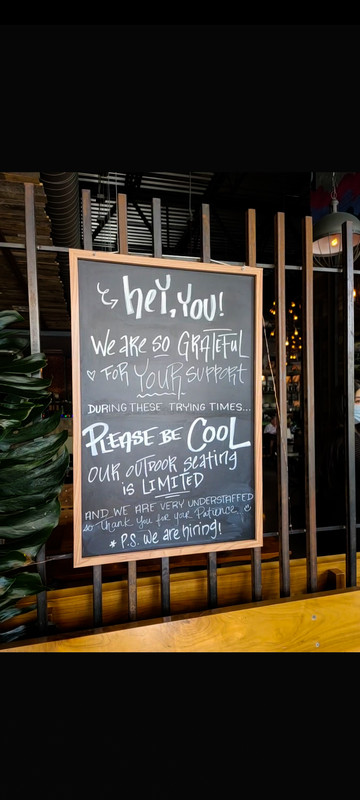 hey, you!
We are so GRATEFUL
FOR YOUR SUPPORT
DURING THESE TRYING TIMES...
PLEASE BE COOL
OUR OUTDOOR seating
is LIMITED
AND WE ARE VERY UNDERSTAFFED
so Thank You for your Patience
* P.S. we are hiring!